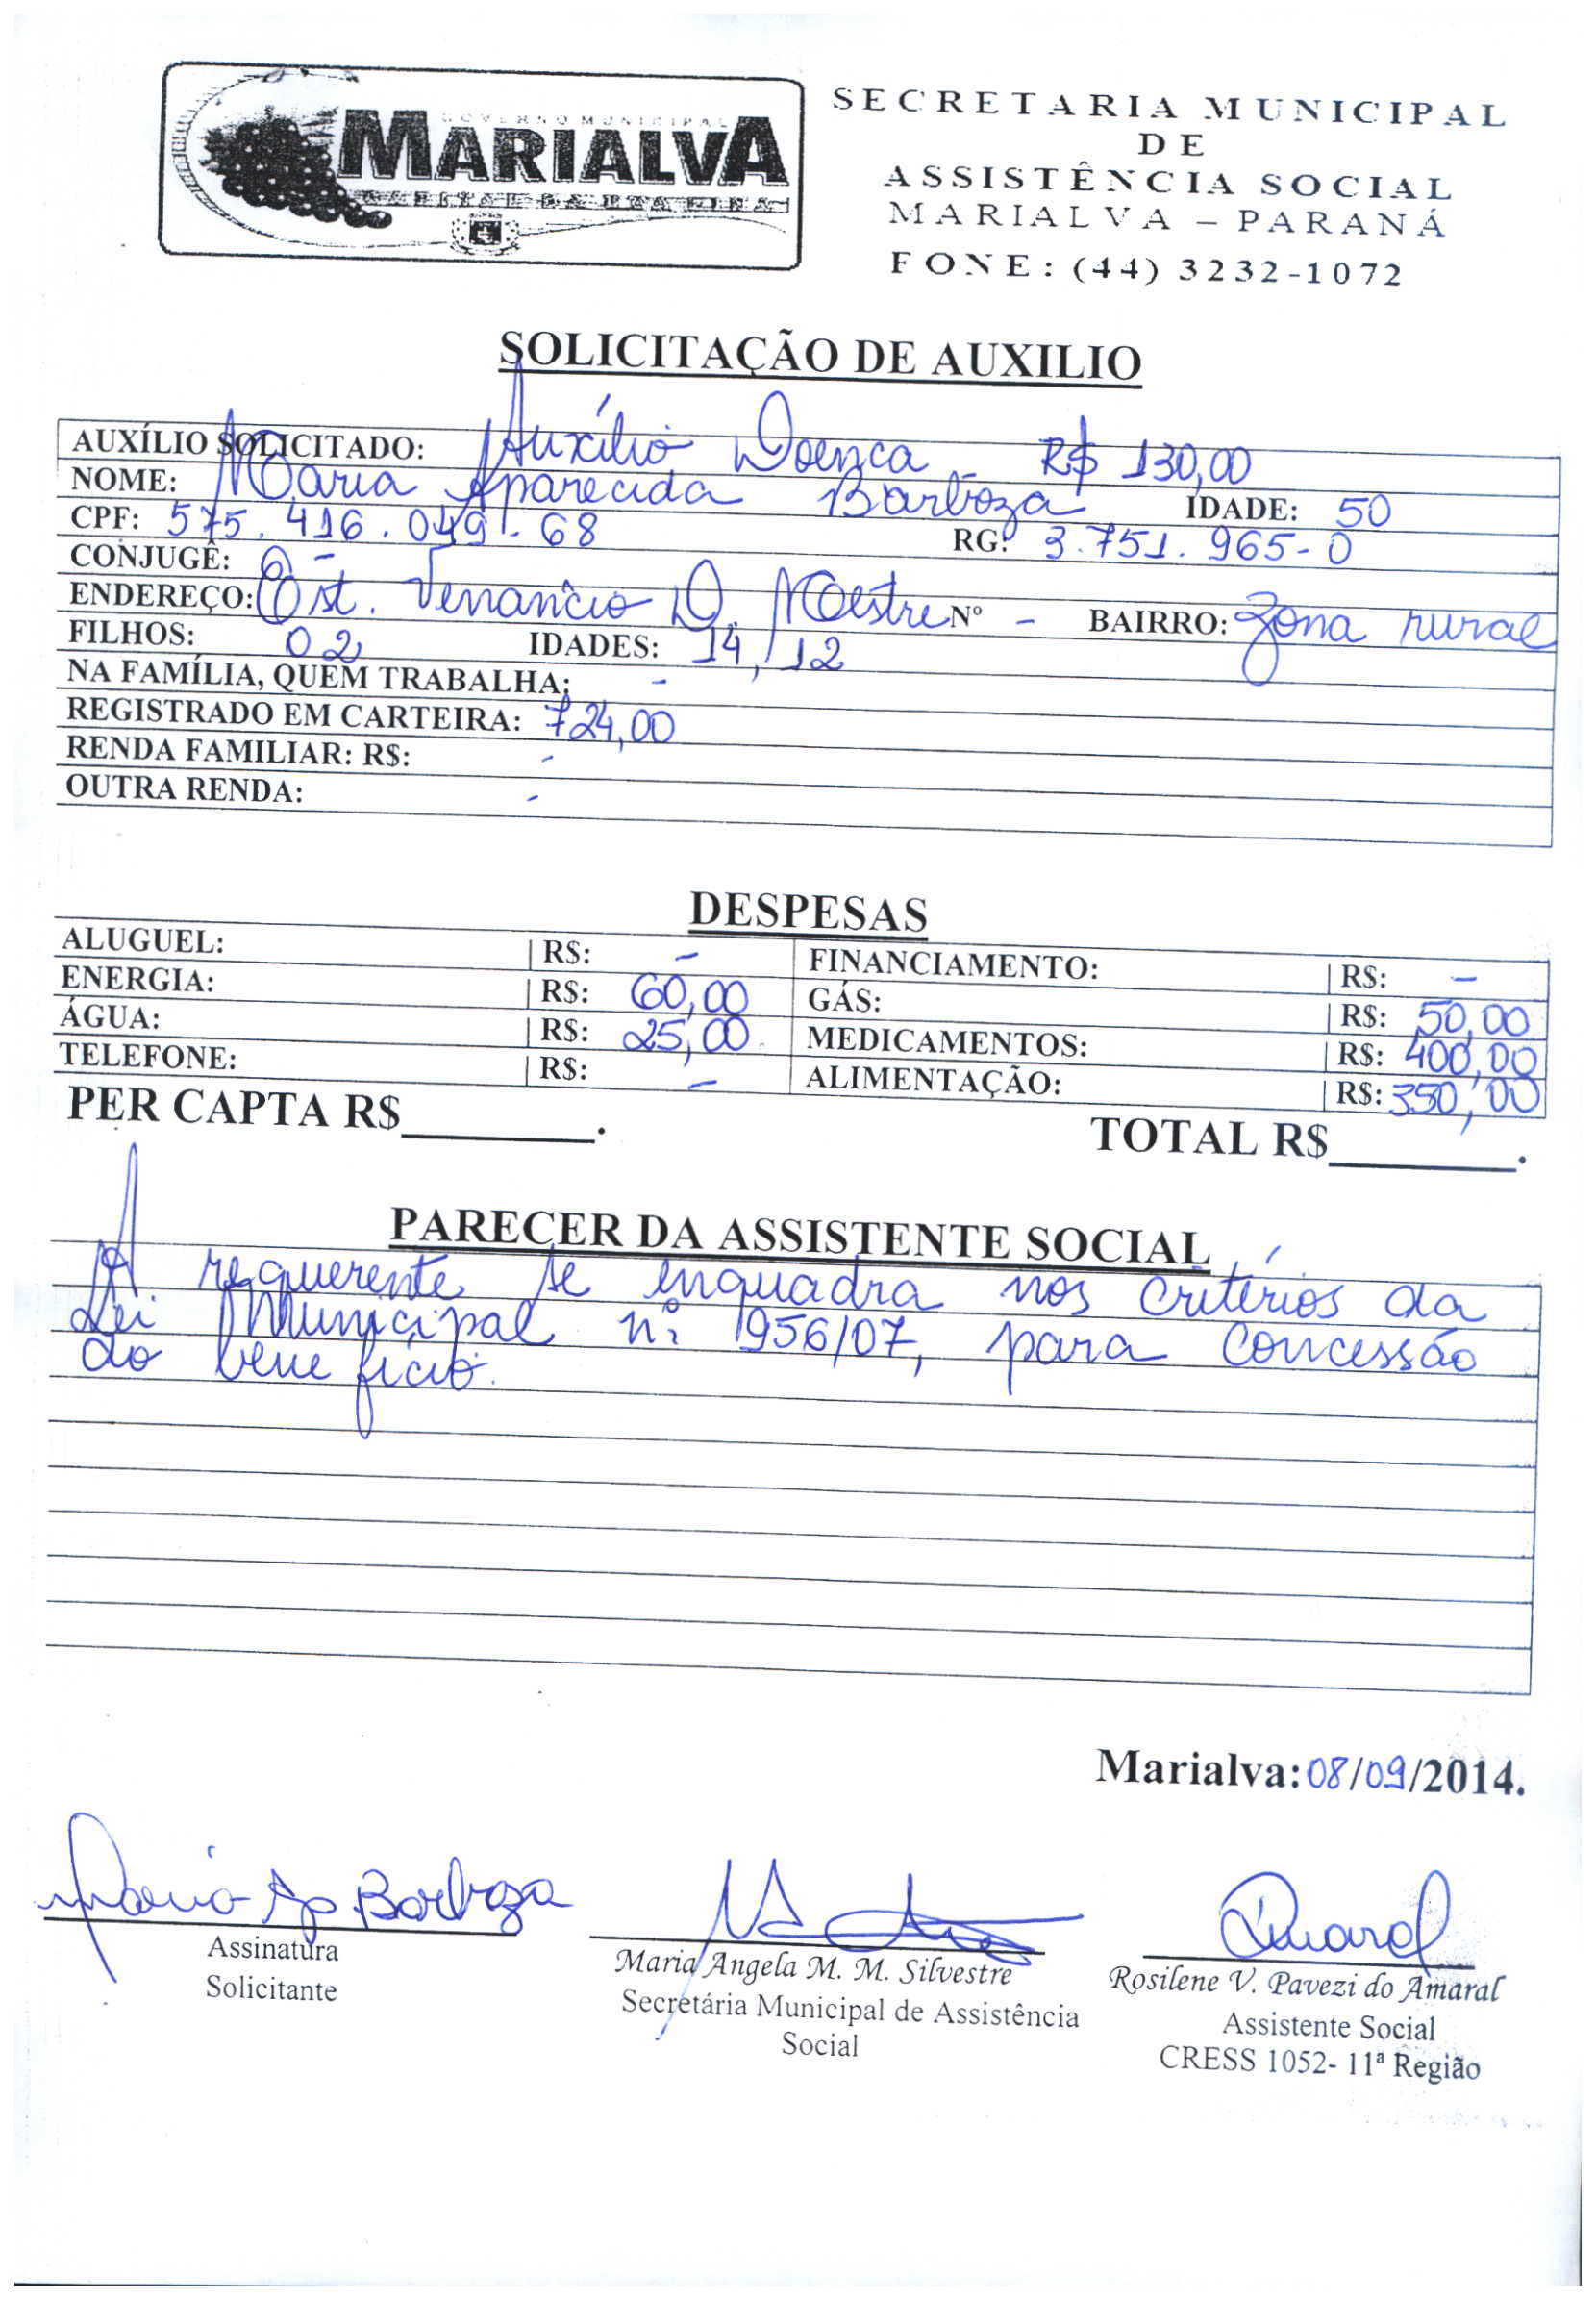 GOVERNO MUNICIPAL
MARIALVA
CAPITAL DA UVA FINA
SECRETARIA MUNICIPAL
DE
ASSISTÊNCIA SOCIAL
MARIALVA – PARANÁ
FONE: (44) 3232-1072
SOLICITAÇÃO DE AUXILIO
AUXÍLIO SOLICITADO: Auxílio Doença - R$ 130,00
NOME: Maria Aparecida Barboza IDADE: 50
CPF: 575.416.049-68 RG: 3.751.965-0
CONJUGÊ: -
ENDEREÇO: Est. Venancio D. Mestre Nº - BAIRRO: Zona rural
FILHOS: 02 IDADES: 14, 12
NA FAMÍLIA, QUEM TRABALHA: -
REGISTRADO EM CARTEIRA: 724,00
RENDA FAMILIAR: R$: -
OUTRA RENDA: -
DESPESAS
ALUGUEL: R$: - FINANCIAMENTO: R$: -
ENERGIA: R$: 60,00 GÁS: R$: 50,00
ÁGUA: R$: 25,00 MEDICAMENTOS: R$: 400,00
TELEFONE: R$: - ALIMENTAÇÃO: R$: 350,00
PER CAPTA R$________. TOTAL R$________.
PARECER DA ASSISTENTE SOCIAL
A requerente se enquadra nos critérios da
Lei Municipal nº 1956/07, para concessão
do benefício.
Marialva: 08/09/2014.
Maria Ap Barboza
Assinatura
Solicitante
Maria Angela M. M. Silvestre
Secretária Municipal de Assistência
Social
Amaral
Rosilene V. Pavezi do Amaral
Assistente Social
CRESS 1052- 11ª Região